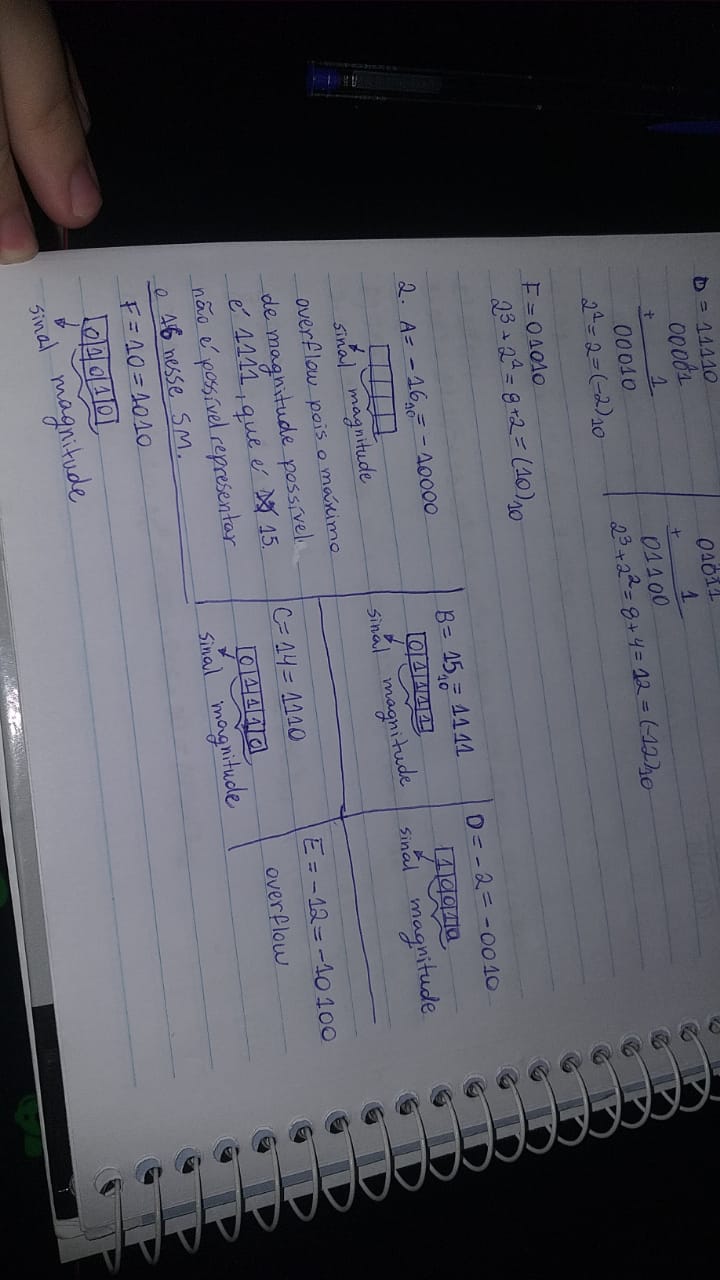 D = 11110
00001
+ 1
00010
2¹ = 2 = (-2)10
01011
+ 1
01100
2³ + 2² = 8 + 4 = 12 = (-12)10
F = 01010
2³ + 2¹ = 8 + 2 = (10)10
2. A = -16₁₀ = -10000
sinal magnitude
overflow pois o máximo
de magnitude possível
é 1111, que é 15.
não é possível representar
o 16 nesse SM.
B = 15₁₀ = 1111
0 1 1 1 1
sinal magnitude
D = -2 = -0010
1 0 0 1 0
sinal magnitude
C = 14 = 1110
0 1 1 1 0
sinal magnitude
E = -12 = -10100
overflow
F = 10 = 1010
0 1 0 1 0
sinal magnitude